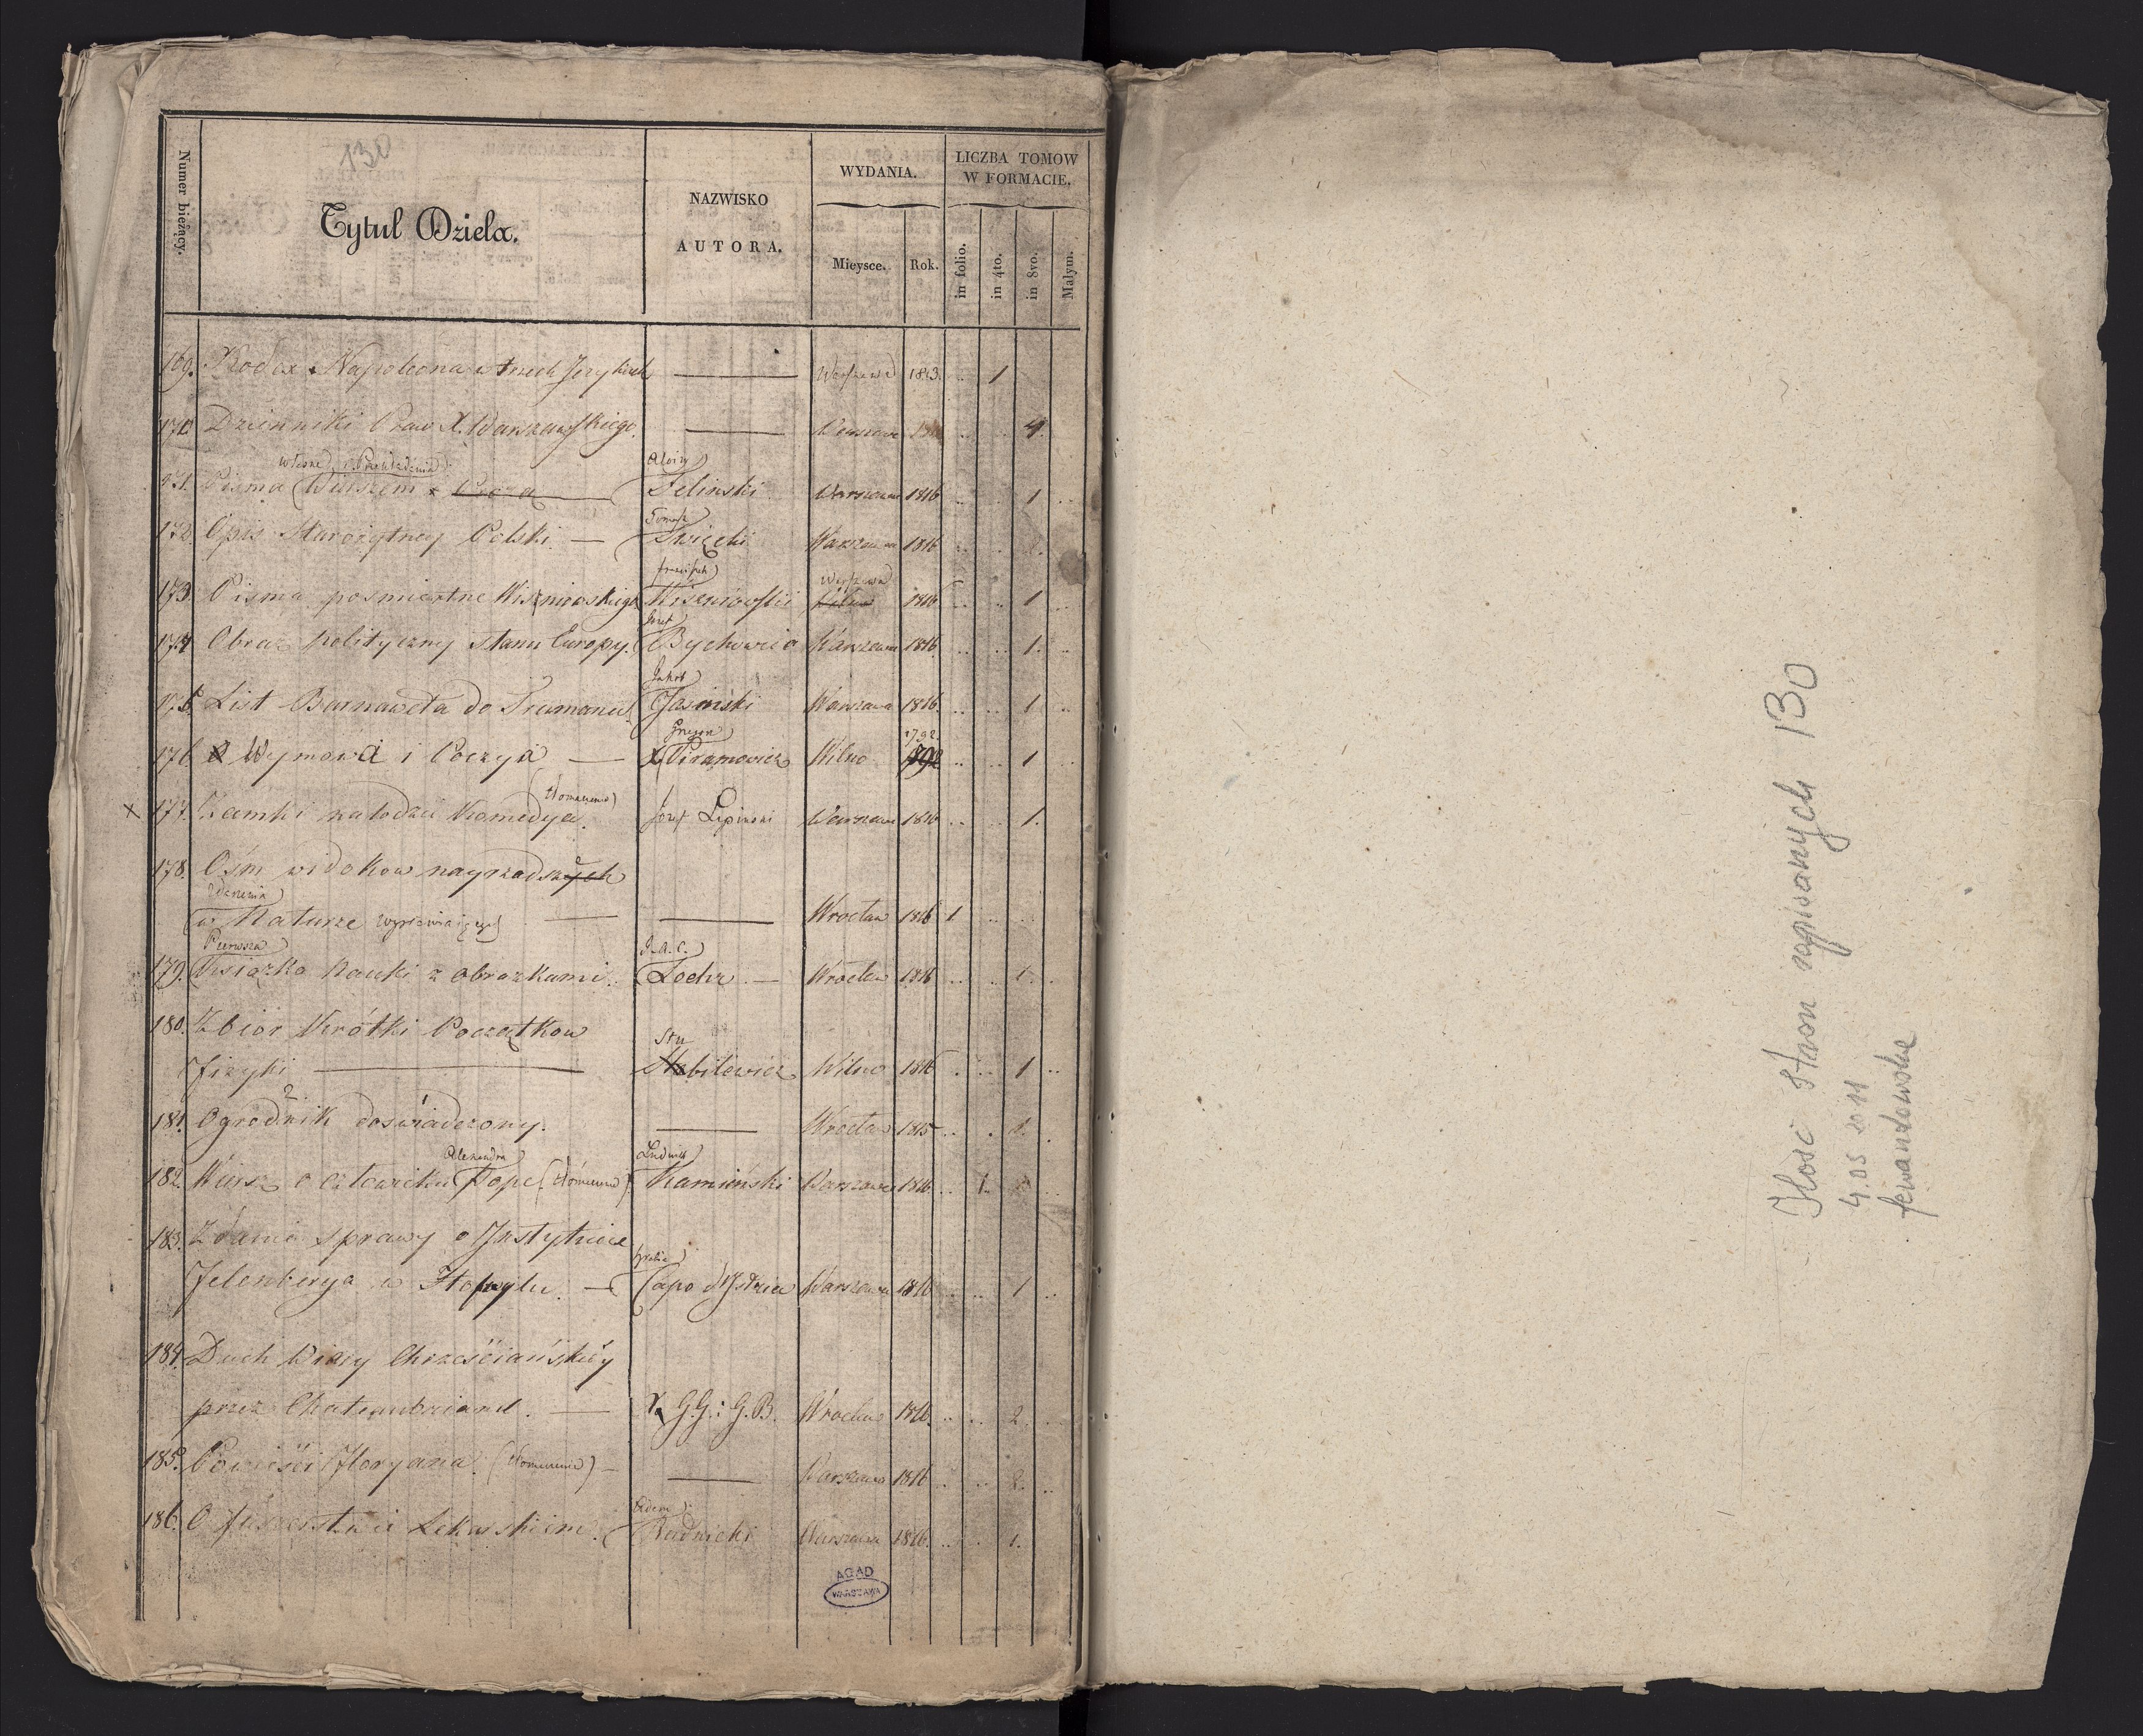 130
Numer bieżący.
Tytul Dzieła.
NAZWISKO
AUTORA.
WYDANIA.
Mieysce.
Rok.
LICZBA TOMOW
W FORMACIE.
in folio.
in 4to.
in 8vo.
Małym.
169. Kodex Napoleona w trzech Językach Warszawa 1813. 1
170 Dzienniki Praw X. Warszawskiego. Warszawa 4.
własne i Przekładania Aloizy
171. Pisma Wierszem Feliński Warszawa 1816 1
Tomasz
172. Opis Starożytney Polski Swięcki Warszawa 1816
franciszek Warszawa
173 Pisma posmiertne Wiszniowskiego Wiszniowski 1816 1
Józef
174 Obraz polityczny stanu Europy. Bychowiec Warszawa 1816 1.
Jakób
175. List Barnawelta do Trumana Jasiński Warszawa 1816. 1
Grzegorz 1792.
176 Wymowa i Poezya X Piramowicz Wilno 1
(tłomaczenie)
x 177. Zamki na lodzie Komedya. Józef Lipinski Warszawa 1816 1.
178. Ośm widokow nayrzadsze
zdarzenia
w Naturze Wrocław 1816 1.
Pierwsza J.A.C.
179. Xsiążka Nauki z obrazkami. Loehr Wrocław 1816 1.
180. Zbior Krótki Początkow
Stu
Fizyki Stubilewicz Wilno 1816 1
181. Ogrodnik doswiadczony. Wrocław 1815 1.
Alexandra Ludwik
182. Wiersz o człowieku Pope (tłómaczenie) Kamiński Warszawa 1816 1.
183. Zdanie sprawy o Instytucie
Felenberga w Hofwylu. Capo d'Istria Warszawa 1816 1
184. Duch Wiary Chrześciańskiéy
przez Chateaubriand. X. G.G. i G.B. Wrocław 1816. 2
185. Powieści Floryana. (tłomaczenie) Warszawa 1816 2.
Adam
186. O Fuszerstwie Lekarskiem. Rudnicki Warszawa 1816. 1.
AGAD
WARSZAWA
Ilość stron zapisanych 130
4.05 2011